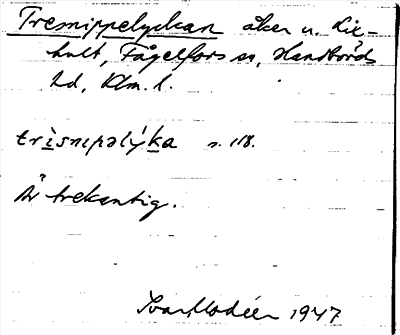 Tresnippelyckan åker u. Lix-
hult, Fågelfors sn, Handbörds
hd, Klm. l.
trìsnɩpəlýka s. 118.
Är trekantig.
Ivar Modéer 1947